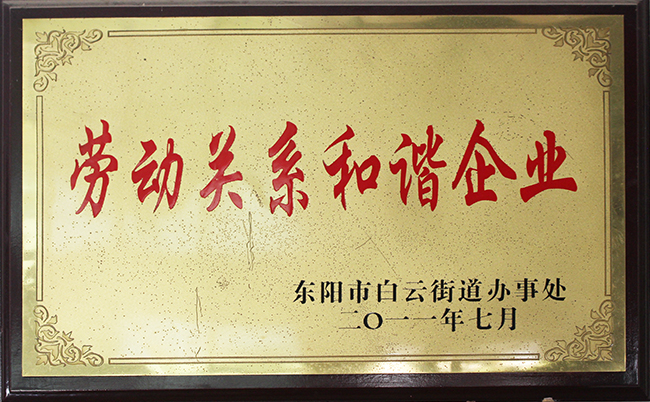 劳动关系和谐企业
东阳市白云街道办事处
二〇一一年七月